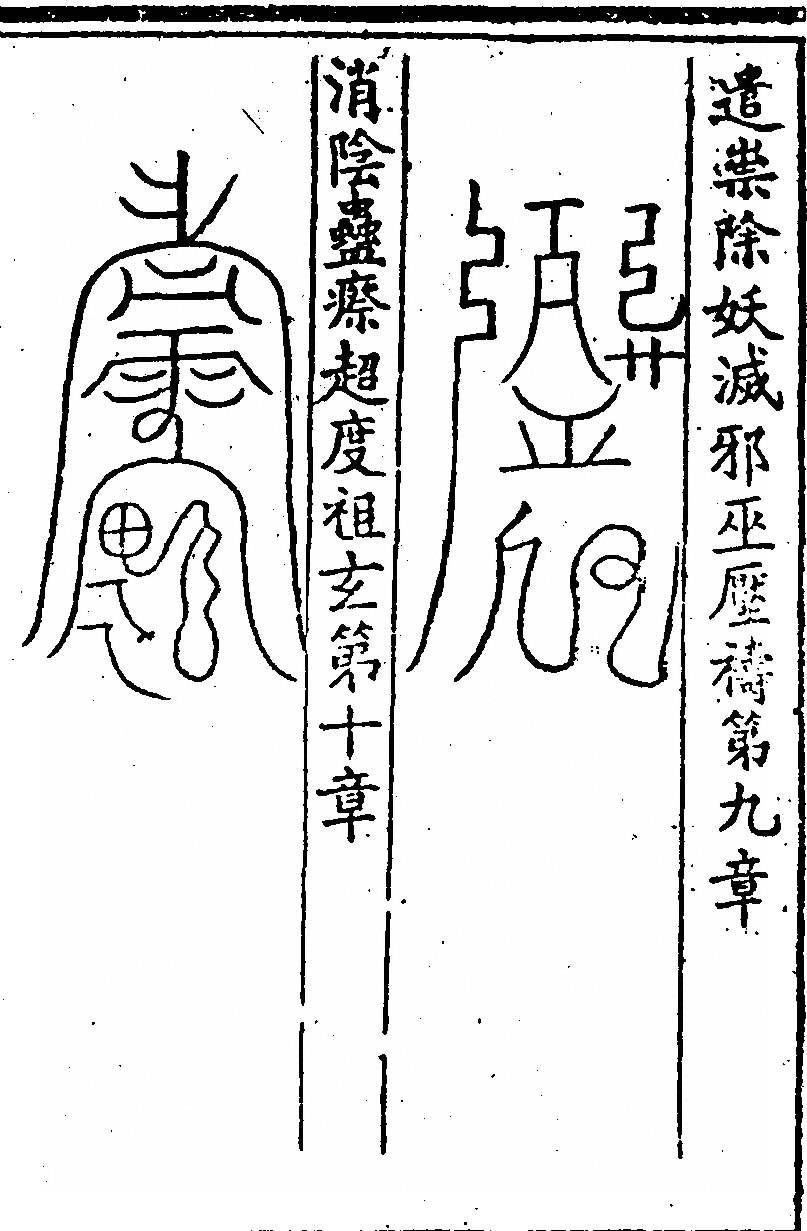 遣祟除妖滅邪巫壓禱第九章
消陰蠱瘵超度祖玄第十章